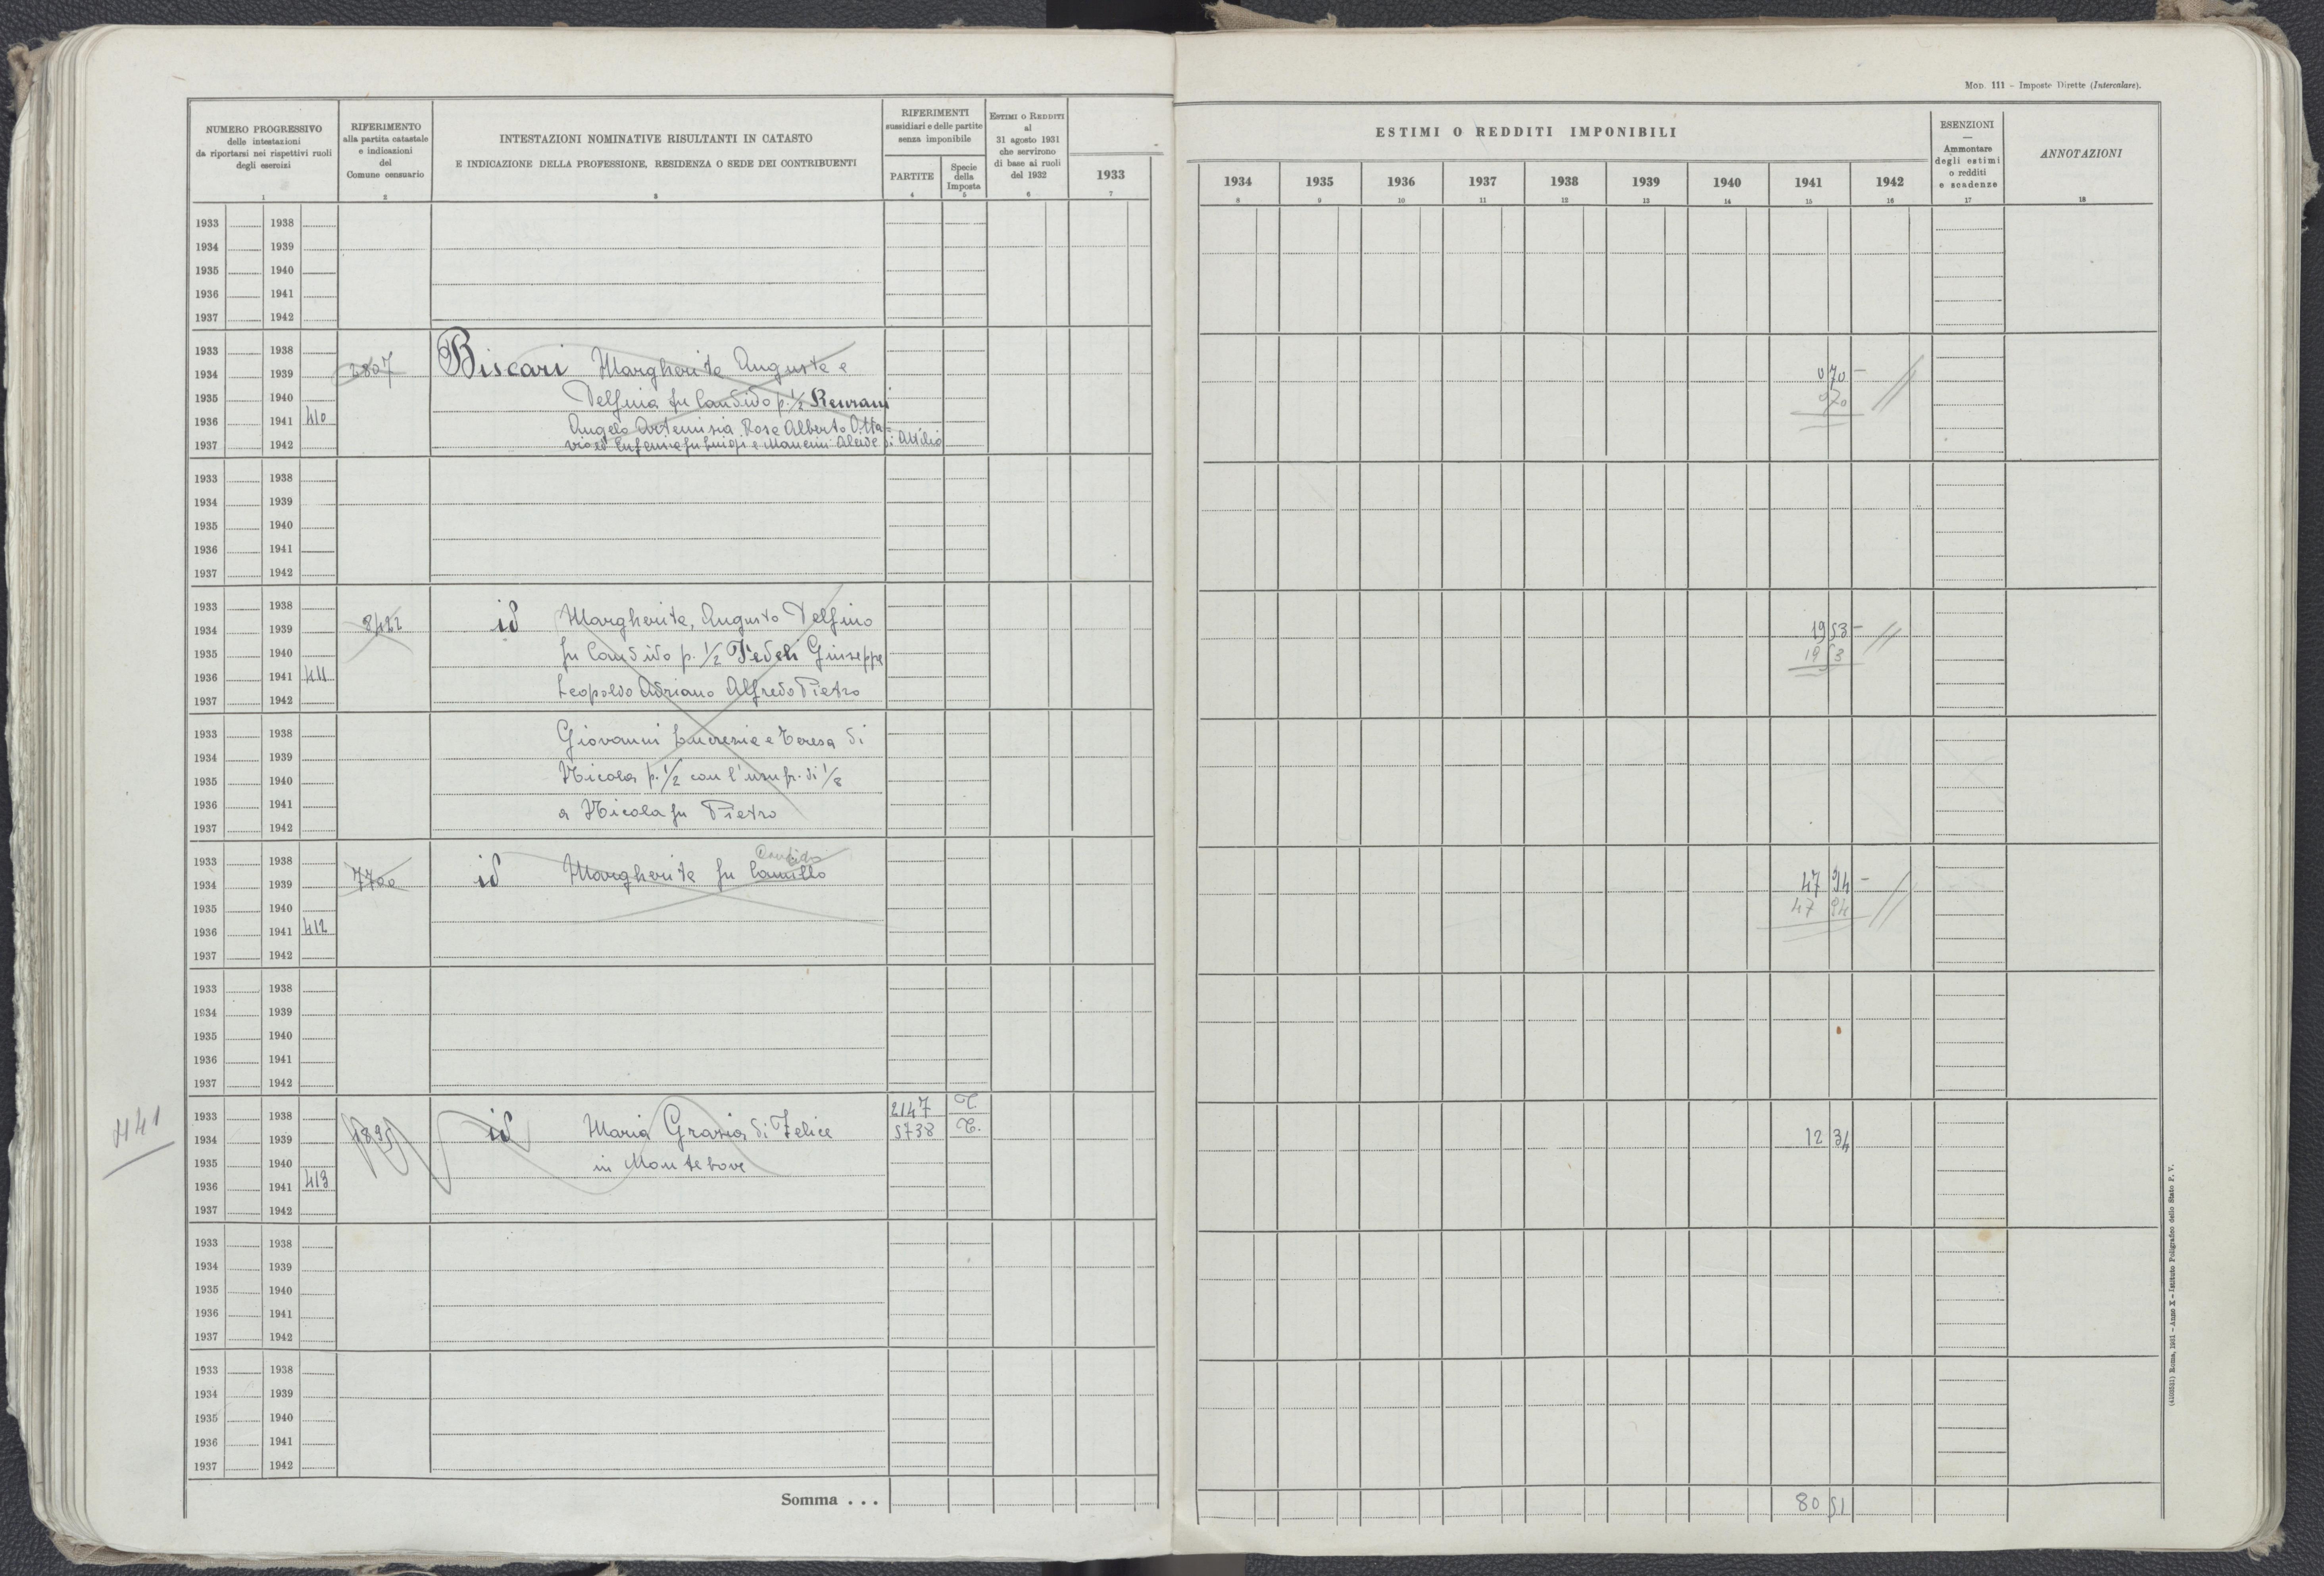 MOD. 111 – Imposte Dirette (Intercalare).
NUMERO PROGRESSIVO
delle intestazioni
da riportarsi nei rispettivi ruoli
degli esercizi
1
RIFERIMENTO
alla partita catastale
e indicazioni
del
Comune censuario
2
INTESTAZIONI NOMINATIVE RISULTANTI IN CATASTO
E INDICAZIONE DELLA PROFESSIONE, RESIDENZA O SEDE DEI CONTRIBUENTI
3
RIFERIMENTI
sussidiari e delle partite
senza imponibile
PARTITE
4
Specie
della
Imposta
5
ESTIMI O REDDITI
al
31 agosto 1931
che servirono
di base ai ruoli
del 1932
6
1933
7
ESTIMI O REDDITI IMPONIBILI
1934 1935 1936 1937 1938 1939 1940 1941 1942
8 9 10 11 12 13 14 15 16
ESENZIONI
—
Ammontare
degli estimi
o redditi
e scadenze
17
ANNOTAZIONI
18
1933 1938
1934 1939
1935 1940
1936 1941
1937 1942
1933 1938
2807 Biscari Margherita Augusta e
1934 1939 0 70 –
1935 1940 Delfina fu Candido p. 1/2
0 70
1936 1941 410
Angelo Artemisia Rosa Alberto Otta-
1937 1942 vio ed Eufemia fu Luigi e Mancini Alcide di Attilio
1933 1938
1934 1939
1935 1940
1936 1941
1937 1942
1933 1938
8422 id Margherita, Augusto Delfino
1934 1939 19 53 –
1935 1940 fu Candido p. 1/2 Fedeli Giuseppe
19 53
1936 1941 411
Leopoldo Adriano Alfredo Pietro
1937 1942
1933 1938 Giovanni Lucrezia e Teresa di
1934 1939
1935 1940 Nicola p. 1/2 con l'usufr. di 1/8
1936 1941 a Nicola fu Pietro
1937 1942
1933 1938
Candido
7700 id Margherita fu Camillo
1934 1939 47 94 –
1935 1940
47 94
1936 1941 412
1937 1942
1933 1938
1934 1939
1935 1940
1936 1941
1937 1942
1933 1938 2147 T.
H41
1934 1939 id Maria Grazia di Felice 5738 T. 12 34
1935 1940 in Montebove
1936 1941 413
1937 1942
1933 1938
1934 1939
1935 1940
1936 1941
1937 1942
1933 1938
1934 1939
1935 1940
1936 1941
1937 1942
Somma . . . 80 51
(4103531) Roma, 1931 – Anno X – Istituto Poligrafico dello Stato P. V.